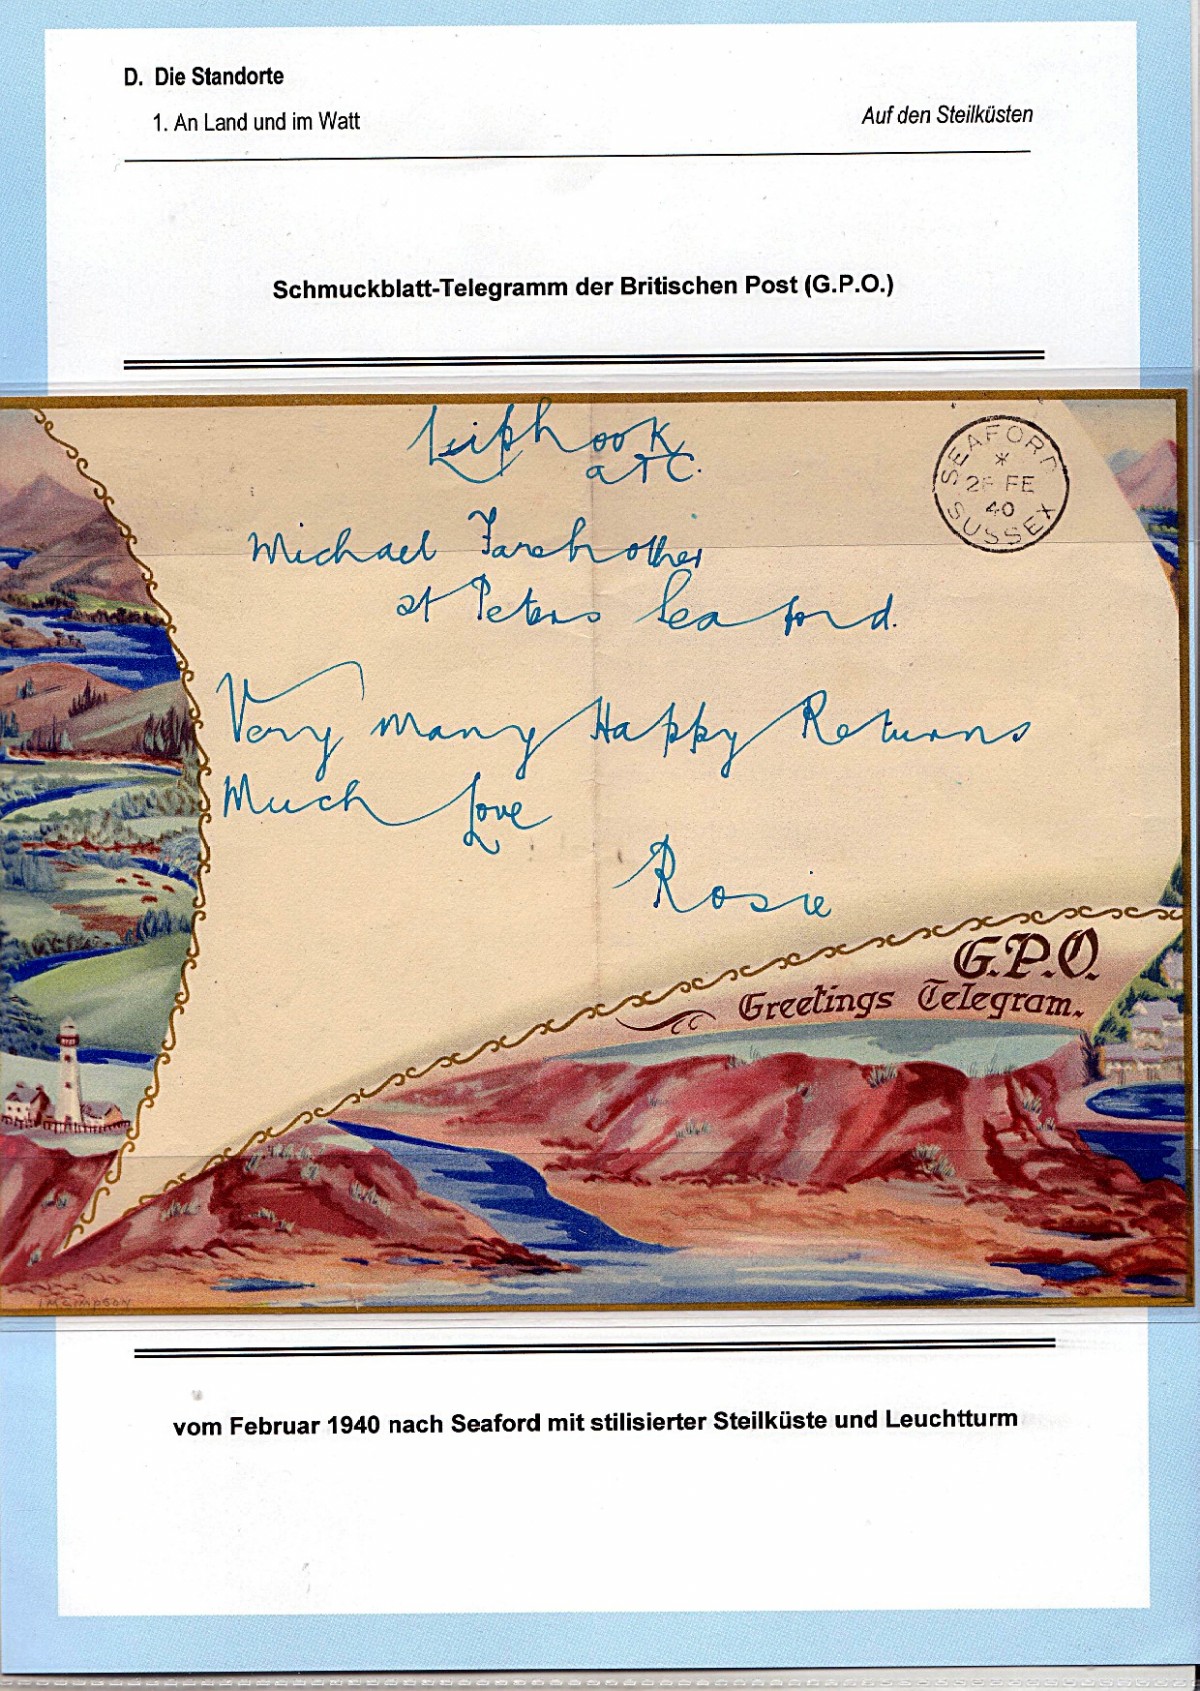 D. Die Standorte
1. An Land und im Watt
Auf den Steilküsten
Schmuckblatt-Telegramm der Britischen Post (G.P.O.)
Liphook
SEAFORD
FE
40
SUSSEX
Michael
St Peters Seaford.
Very Many Happy Returns
Much Love
Rosie
G.P.O.
Greetings Telegram.
vom Februar 1940 nach Seaford mit stilisierter Steilküste und Leuchtturm